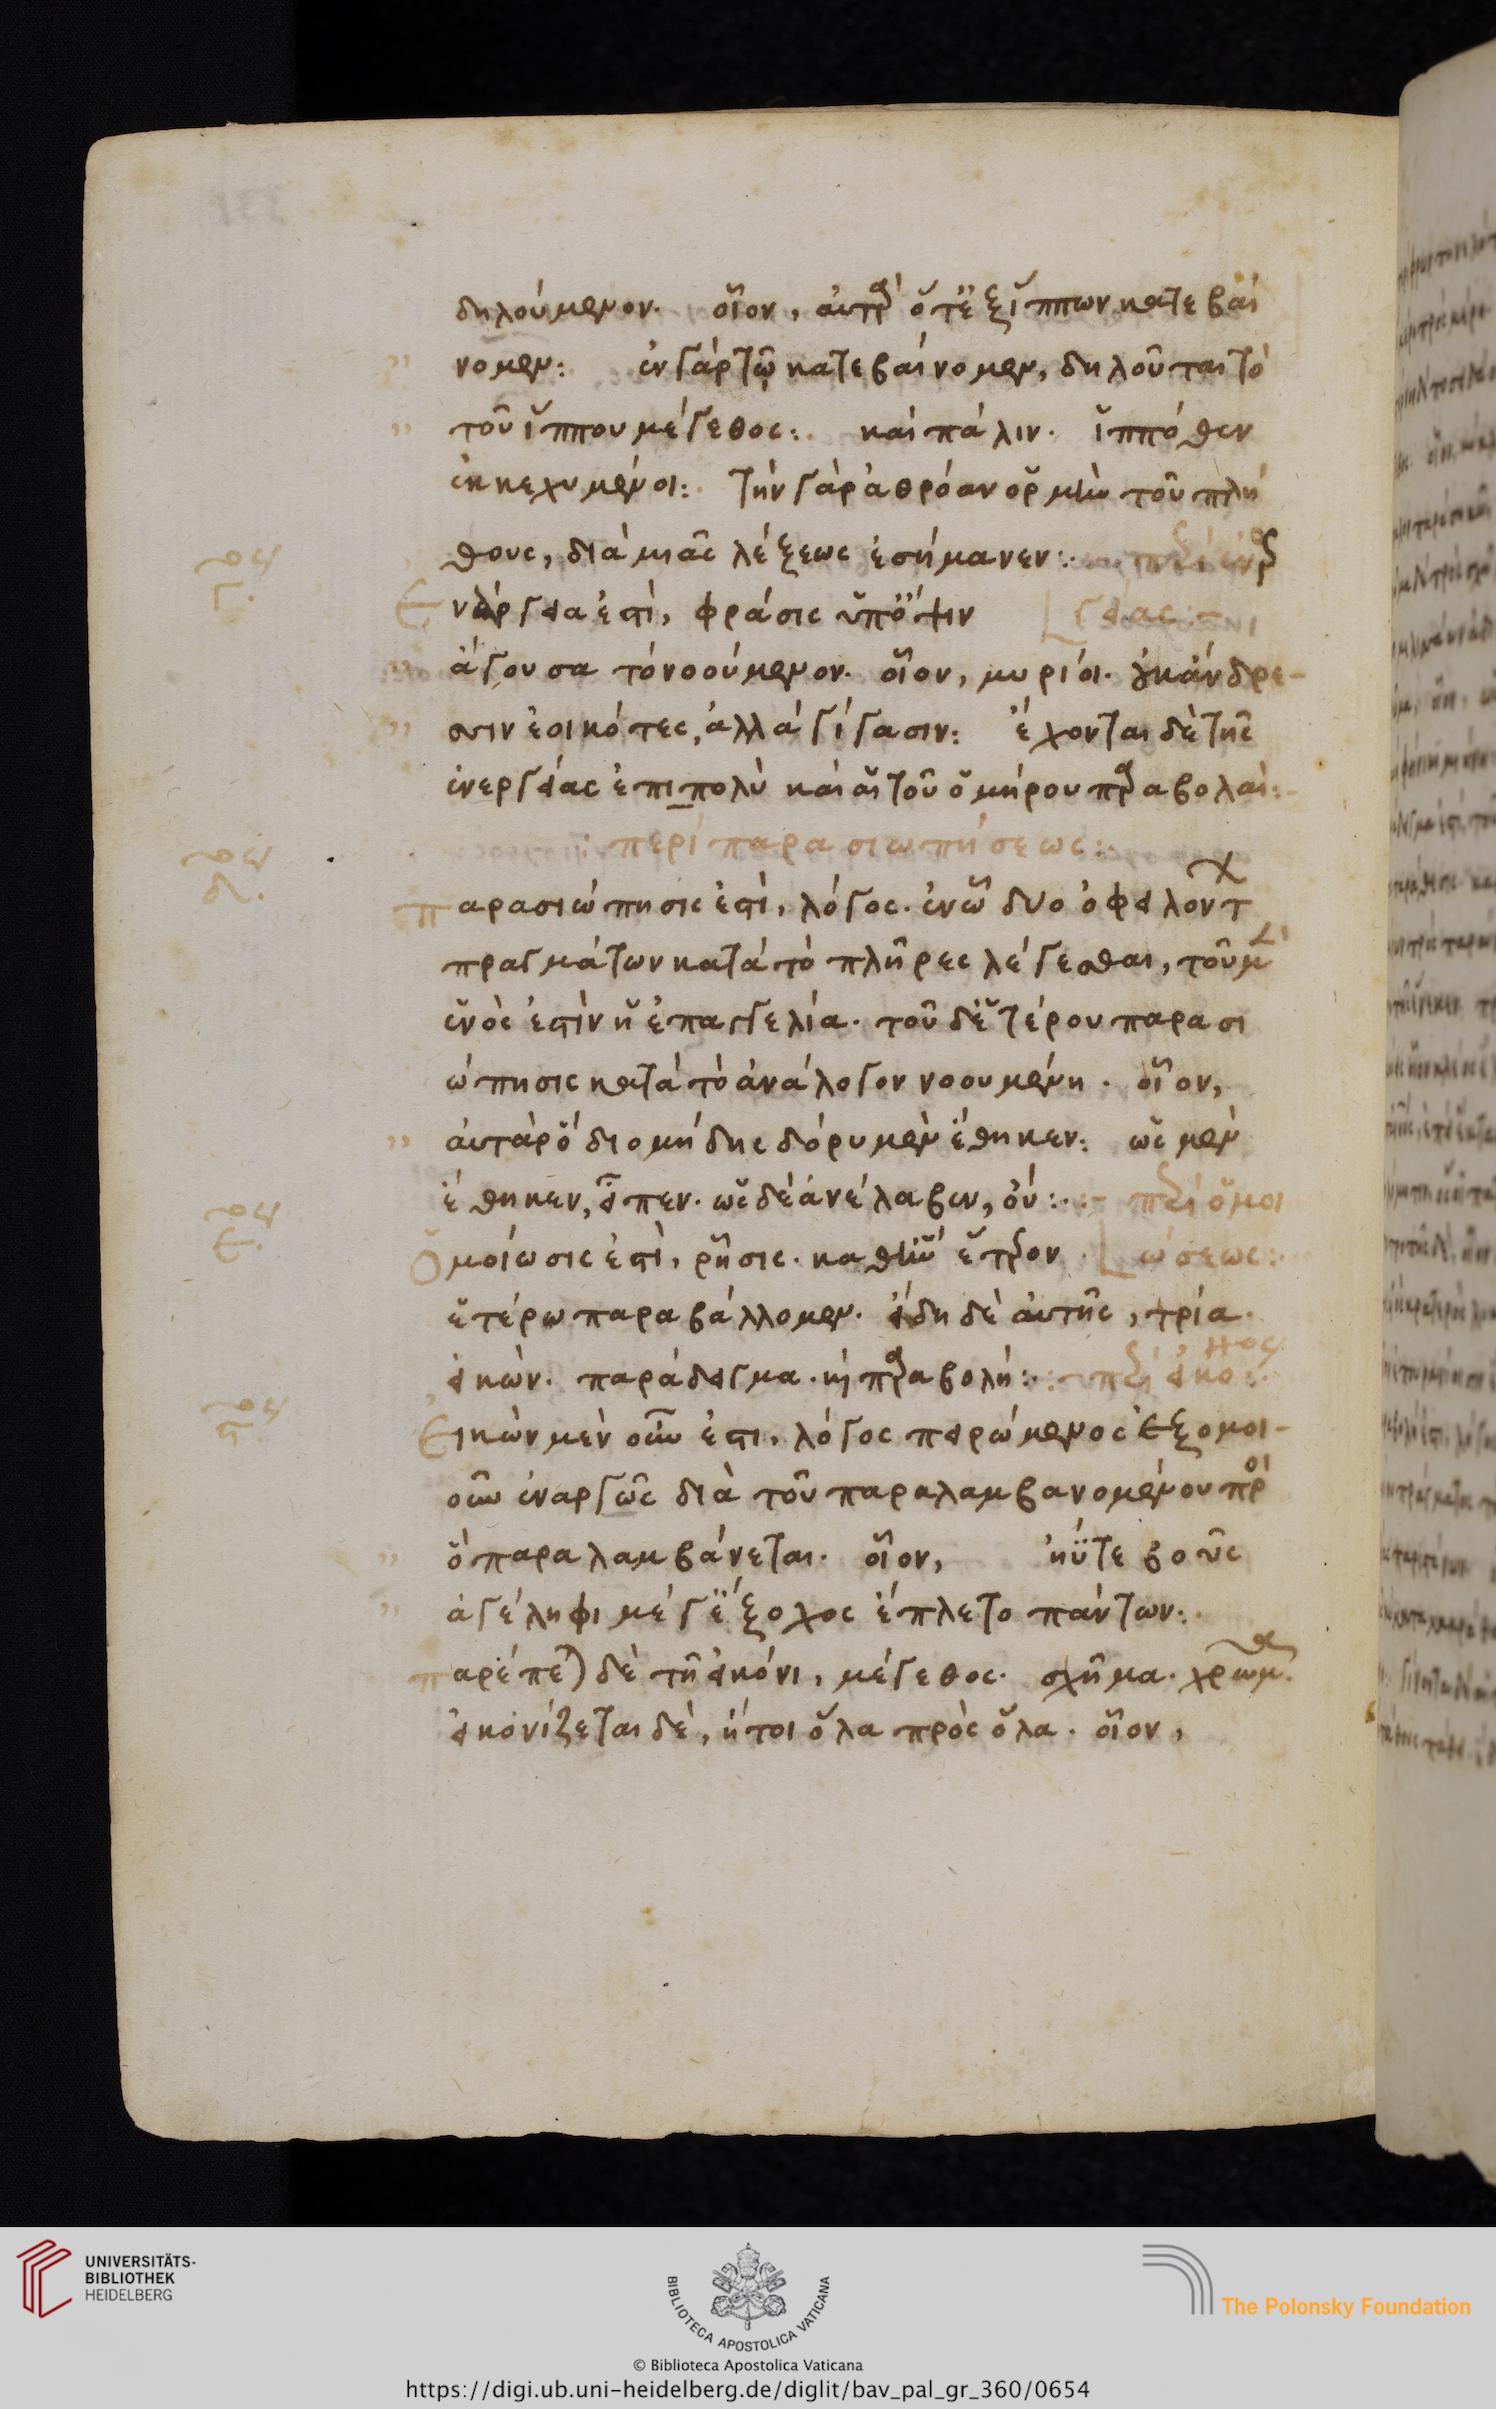 δηλούμενον. οἷον, αὐτὰρ ὅτ' ἐξ ἵππων κατεβαί
νομεν: ἐν γὰρ τῷ κατεβαίνομεν, δηλοῦται τὸ
τοῦ ἵππου μέγεθος: καὶ πάλιν. ἵππόθεν
ἐκκεχυμένοι: τὴν γὰρ ἀθρόαν ὁρμὴν τοῦ πλή
θους, διὰ μιᾶς λέξεως ἐσήμανεν: περὶ ἐναρ
γείας:
Ενάργεια ἐστὶ, φράσις ὑπ' ὄψιν
ἄγουσα τὸ νοούμενον. οἷον, μυρίοι. οὐκ ἄνδρε-
σιν ἐοικότες, ἀλλὰ γίγασιν: ἔχονται δὲ τῆς
ἐνεργείας ἐπιπολὺ καὶ αἱ τοῦ ὁμήρου παραβολαί:
περὶ παρασιωπήσεως:
Παρασιώπησις ἐστὶ, λόγος. ἐν ᾧ δυο ὀφειλόντων
πραγμάτων κατὰ τὸ πλῆρες λέγεσθαι, τοῦ μὲν
ἑνὸς ἐστὶν ἡ ἐπαγγελία. τοῦ δευτέρου παρασι
ώπησις κατὰ τὸ ἀνάλογον νοουμένη. οἷον,
αὐτὰρ ὁ διομήδης δόρυ μὲν ἔθηκεν: ὡς μὲν
ἔθηκεν, εἶπεν. ὡς δὲ ἀνέλαβεν, οὐ: περὶ ὁμοι
ώσεως:
Ομοίωσις ἐστὶ, ῥῆσις. καθ' ἣν ἕτερον
ἑτέρω παραβάλλομεν. εἴδη δὲ αὐτῆς, τρία.
εἰκών. παράδειγμα. καὶ παραβολή: περὶ εἰκόνος:
Εἰκὼν μὲν οὖν ἐστι, λόγος πειρώμενος ἐξομοι-
οῦν ἐναργῶς διὰ τοῦ παραλαμβανομένου πρὸς
ὃ παραλαμβάνεται. οἷον, ἠΰτε βοῦς
ἀγέληφι μέγ' ἔξοχος ἔπλετο πάντων:
παρέπεται δὲ τῆ εἰκόνι, μέγεθος. σχῆμα. χρῶμα.
εἰκονίζεται δὲ, ἤτοι ὅλα πρὸς ὅλα. οἷον,
UNIVERSITÄTS-
BIBLIOTHEK
HEIDELBERG
BIBLIOTECA APOSTOLICA VATICANA
The Polonsky Foundation
© Biblioteca Apostolica Vaticana
https://digi.ub.uni-heidelberg.de/diglit/bav_pal_gr_360/0654